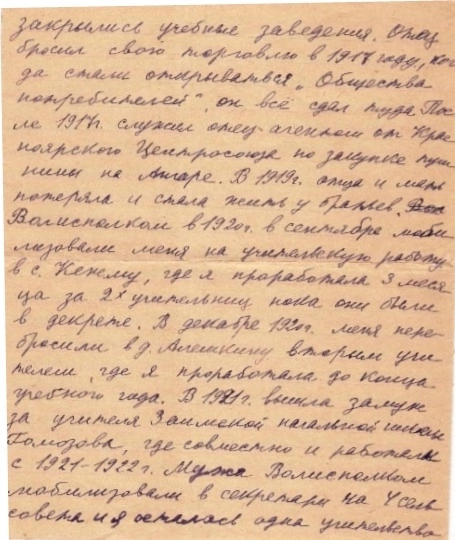 закрылись учебные заведения. Отец
бросил свою торговлю в 1917 году, ког
да стали открываться „Общества
потребителей“, он всё сдал туда. Пос
ле 1917г. служил отец агентом от Крас
ноярского Центросоюза по закупке пуш
нины на Ангаре. В 1919г. отца и мать
потеряла и стала жить у братьев.
Волисполком в 1920г. в сентябре моби
лизовали меня на учительскую работу
в с. Кежму, где я проработала 3 меся
ца за 2х учительниц пока они были
в декрете. В декабре 1920г. меня пере-
бросили в д. Алешкину вторым учи
телем, где я проработала до конца
учебного года. В 1921г. вышла замуж
за учителя Заимской начальной школы
Гомозова, где совместно и работали
с 1921-1922г. Мужа Волисполком
мобилизовали в секретари на 4 сель
совета и я осталась одна учительство